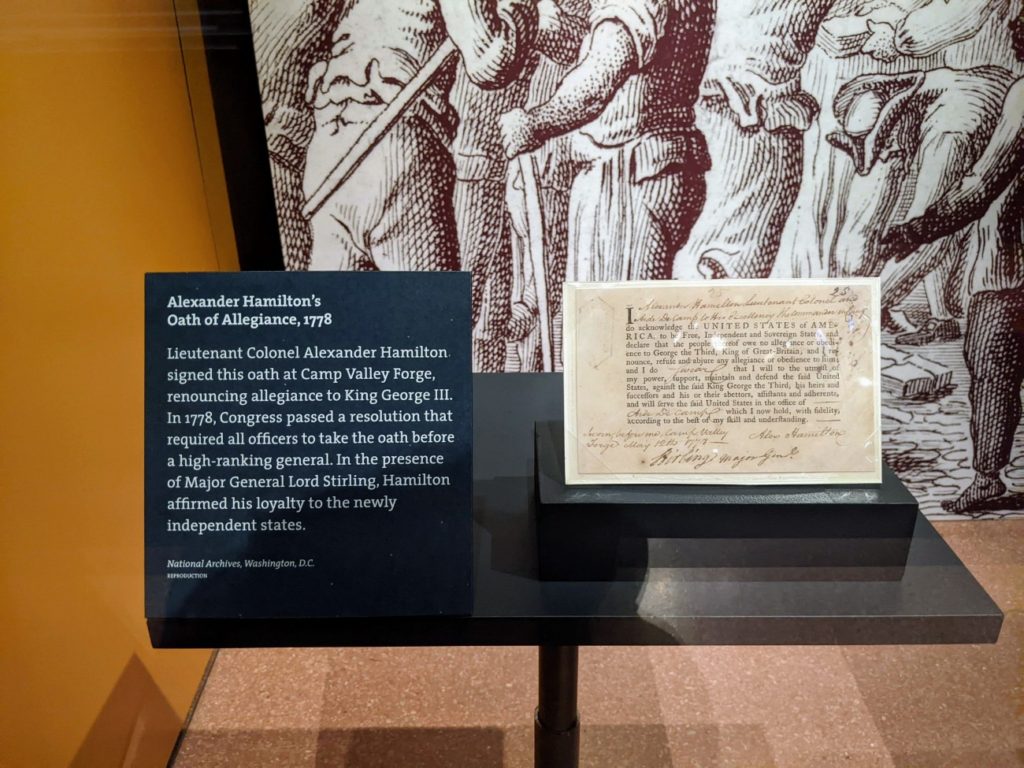 Alexander Hamilton's
Oath of Allegiance, 1778
Lieutenant Colonel Alexander Hamilton
signed this oath at Camp Valley Forge,
renouncing allegiance to King George III.
In 1778, Congress passed a resolution that
required all officers to take the oath before
a high-ranking general. In the presence
of Major General Lord Stirling, Hamilton
affirmed his loyalty to the newly
independent states.
National Archives, Washington, D.C.
REPRODUCTION
25
I Alexander Hamilton Lieutenant Colonel and
Aide De Camp to His Excellency the Commander in
do acknowledge the UNITED STATES of AME-
RICA, to be Free, Independent and Sovereign States, and
declare that the people thereof owe no allegiance or obedi-
ence to George the Third, King of Great-Britain; and I re-
nounce, refuse and abjure any allegiance or obedience to him;
and I do swear that I will to the utmost of
my power, support, maintain and defend the said United
States, against the said King George the Third, his heirs and
successors and his or their abettors, assistants and adherents,
and will serve the said United States in the office of
Aide De Camp which I now hold, with fidelity,
according to the best of my skill and understanding.
Sworn before me, Camp Valley
Forge May 12th 1778 Alex Hamilton
Stirling, Major Genl.